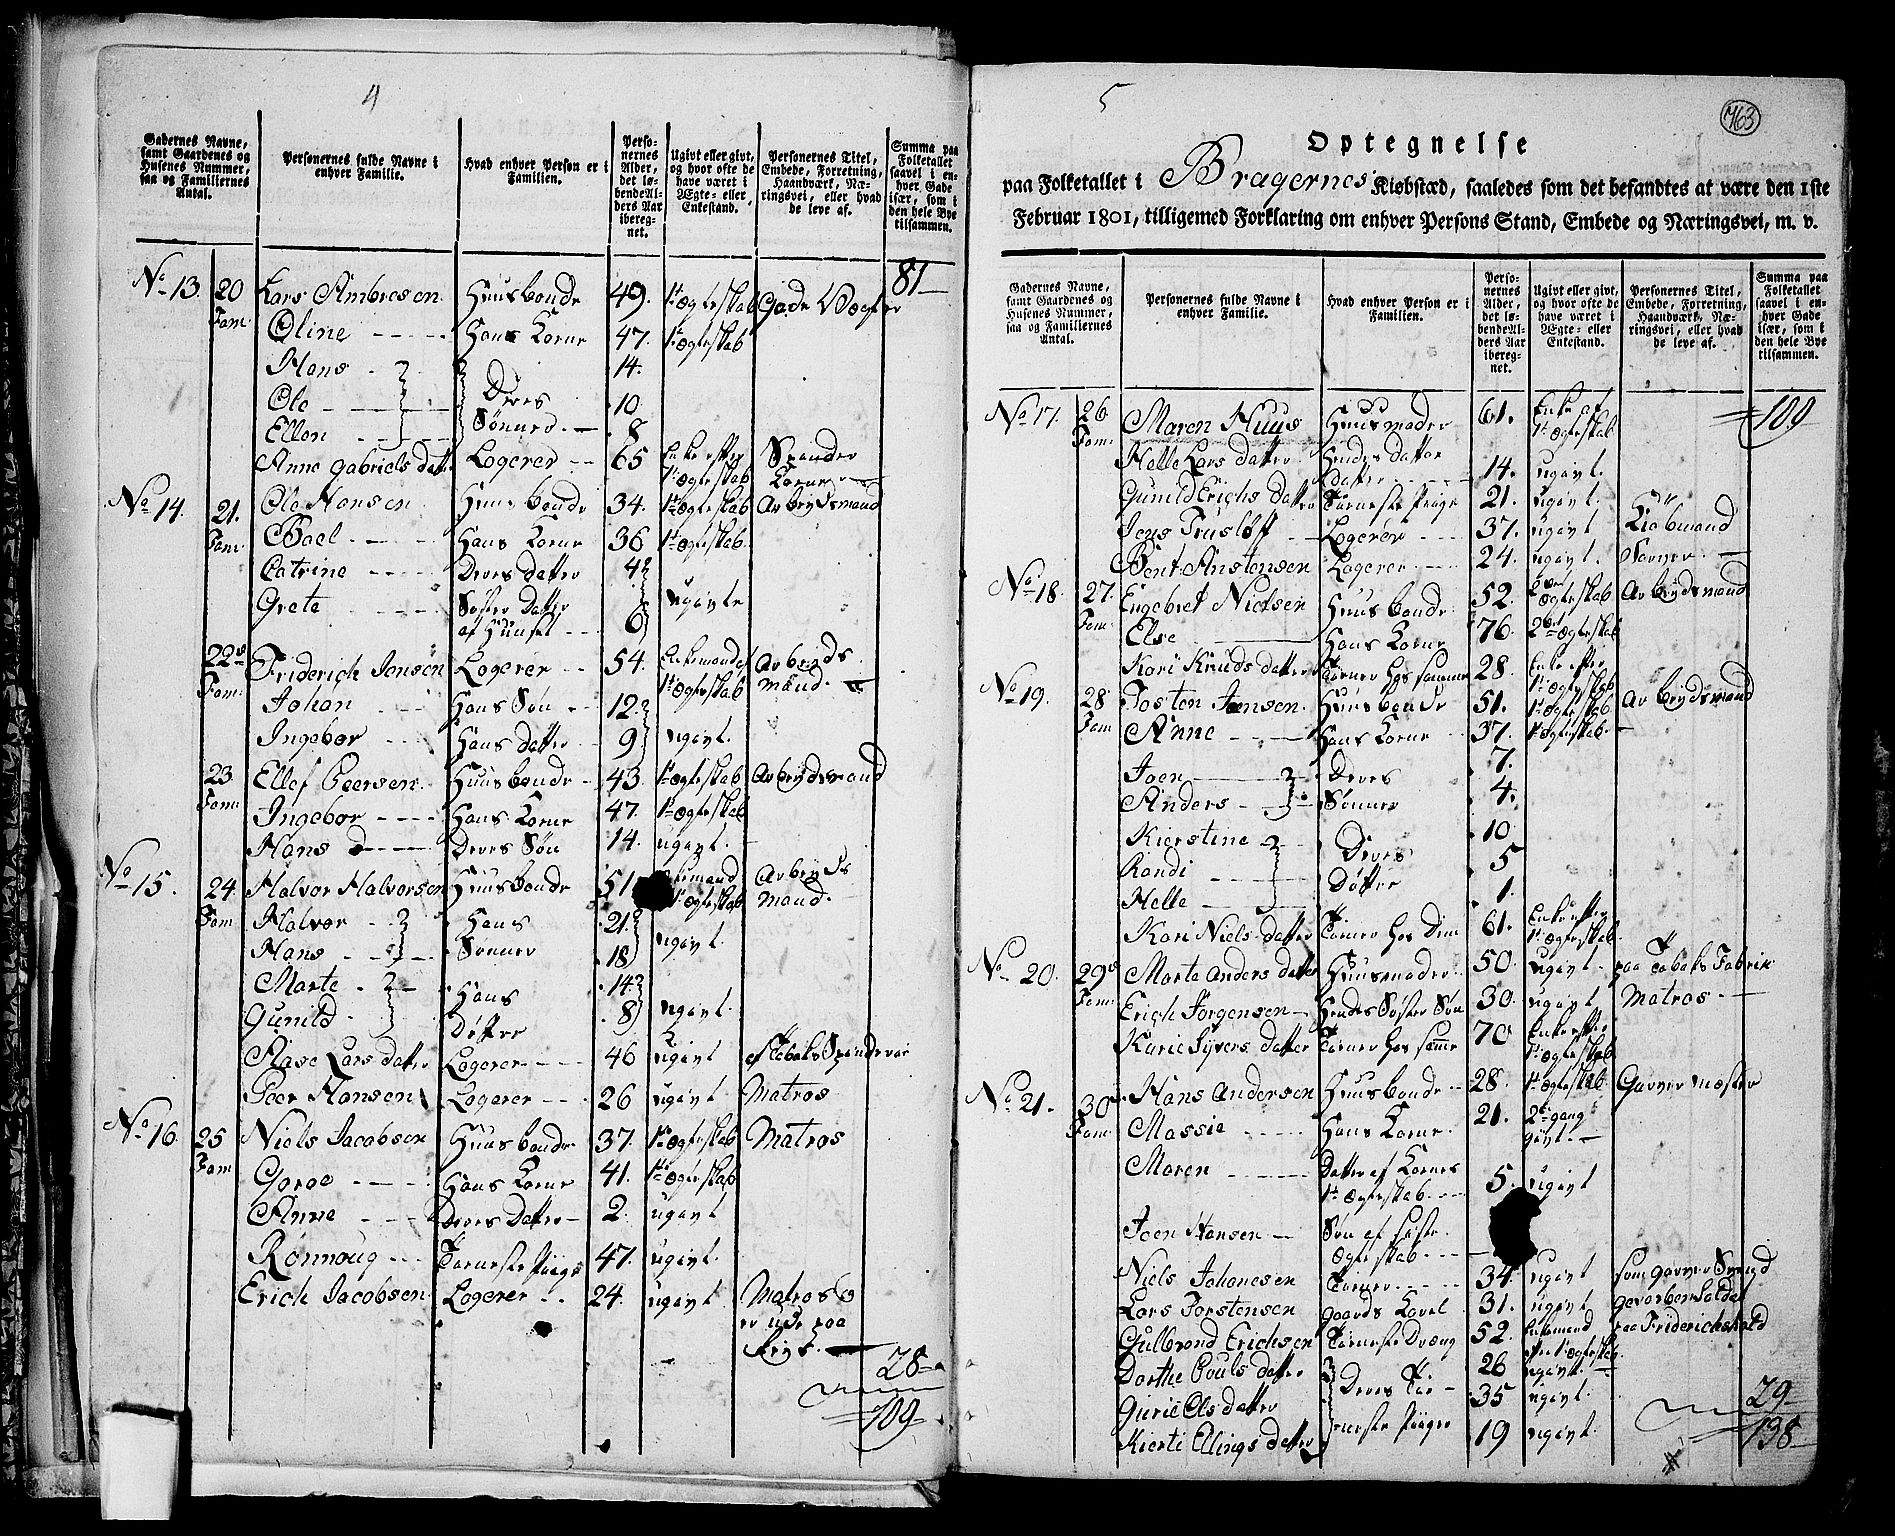 4
Gadernes Navne,
samt Gaardenes og
Husenes Nummer,
saa og Familiernes
Antal.
Personernes fulde Navne i
enhver Familie.
Hvad enhver Person er i
Familien.
Perso-
nernes
Alder,
det lø-
bende Al-
ders Aar
ibereg-
net.
Ugivt eller givt,
og hvor ofte de
have været i
Ægte- eller
Enkestand.
Personernes Titel,
Embede, Forretning,
Haandværk, Næ-
ringsvei, eller hvad
de leve af.
Summa paa
Folketallet
saavel i en-
hver Gade
især, som i
den hele Bye
tilsammen.
81
No 13. 20 Fam. Lars Ambresen Huusbonde 49. 1te Ægteskab Gade Vægter
Oline Hans Kone 47. 1te Ægteskab
Hans 14.
Ole Deres 10
Ellen Sønner 8
Anne Gabriels datter Logerer 65 Enke efter 1te Ægteskab Spinder Konne
No 14. 21. Fam. Ole Hansen Huusbonde 34. 1te Ægteskab Arbeydsmand
Boel Hans Kone 36 1te Ægteskab
Catrine Deres datter 4
Grete Søster datter af Huuset 6 ugivte
22de Fam. Friderich Jensen Logerer 54. Enkemand af 1te Ægteskab Arbeyds mand
Johan Hans Søn 12.
Ingebor Hans datter 9 ugivt.
23 Fam. Ellef Peersen Huusbonde 43 1te Ægteskab Arbeydsmand
Ingebor Hans Kone 47. 1te Ægteskab
Hans Deres Søn 14. ugivt.
No 15. 24 Fam. Halvor Halvorsen Huusbonde 51 Enkemand 1te Ægteskab Arbeyds mand.
Halvor Hans 21
Hans Sønner 18 ugivt
Marte Hans 14
Gunild Døttre 8 ugivt.
Aase Lars datter Logerer 46 ugivt
Peer Hansen Logerer 26 ugivt Matros
No 16. 25 Fam Niels Jacobsen Huusbonde 37. 1te Ægteskab Matros
Goroe Hans Kone 41. 1te Ægteskab
Anne Deres Datter 2. ugivt
Rønnoug Tieneste Piige 47. ugivt.
Erich Jacobsen Logerer 24. ugivt Matros
er ude paa
Reys.
28
109
5
763
Optegnelse
paa Folketallet i Bragernes Kiøbstæd, saaledes som det befandtes at være den 1ste
Februar 1801, tilligemed Forklaring om enhver Persons Stand, Embede og Næringsvei, m. v.
Gadernes Navne,
samt Gaardenes og
Husenes Nummer,
saa og Familiernes
Antal.
Personernes fulde Navne i
enhver Familie.
Hvad enhver Person er i
Familien.
Perso-
nernes
Alder,
det lø-
bende Al-
ders Aar
ibereg-
net.
Ugivt eller givt,
og hvor ofte de
have været i
Ægte- eller
Enkestand.
Personernes Titel,
Embede, Forretning,
Haandværk, Næ-
ringsvei, eller hvad
de leve af.
Summa paa
Folketallet
saavel i en-
hver Gade
især, som i
den hele Bye
tilsammen.
No 17. 26 Fam. Maren Huus Huusmoder 61. Enke af 1te Ægteskab 109
Helle Lars datter Hendes datter datter 14. ugivt.
Gunild Erichs datter Tieneste Piige 21. ugivt.
Jens Trusløff Logerer 37. ugivt Kiøbmand
Bent Anstensen Logerer 24. ugivt. Farver
No 18. 27. Fam. Engebret Nielsen Huusbonde 52. 2den Ægteskab Arbeydsmand
Else Hans Kone 76. 2det Ægteskab
Kari Knuds datter Tiener hos samme 28 Enke efter 1te Ægteskab
No 19. 28 Fam Tosten Jensen Huusbonde 51. 1te Ægteskab Arbeydsmand
Anne Hans Kone 37. 1te Ægteskab
Joen Deres 7.
Anders Sønner 4.
Kierstine 10
Randi Deres 5
Helle Døttre 1.
Kari Niels datter Tiener hos Dem 61. Enke efter 1te Ægteskab
No 20. 29de Fam. Marte Anders datter Huusmoder 50. ugivt paa Tobaks Fabrik
Erich Jørgensen Hendes Søster Søn 30. ugivt Matros
Karie Syvers datter Tiener hos samme 70 Enke efter 1te Ægteskab
No 21. 30 Fam. Hans Andersen Huusbonde 28. 1te Ægteskab Garver mæster
Massie Hans Kone 21. 2den gang givt.
Maren Datter af Kones 1te Ægteskab 5. ugivt
Joen Hansen Søn af siste Ægteskab
Niels Johanesen Tiener 34 ugivt som garver Svend
Lars Torstensen gaards Karl 31. ugivt gevorben Soldat
Gulbrand Erichsen Tieneste Dreng 52. Enkemand efter 1te Ægteskab paa Friderichshald
Dorthe Pouls datter Deres Tie- 26 ugivt.
Gurie Ols datter 35 ugivt.
Kierti Ellings datter neste Piiger 19 ugivt.
29
138